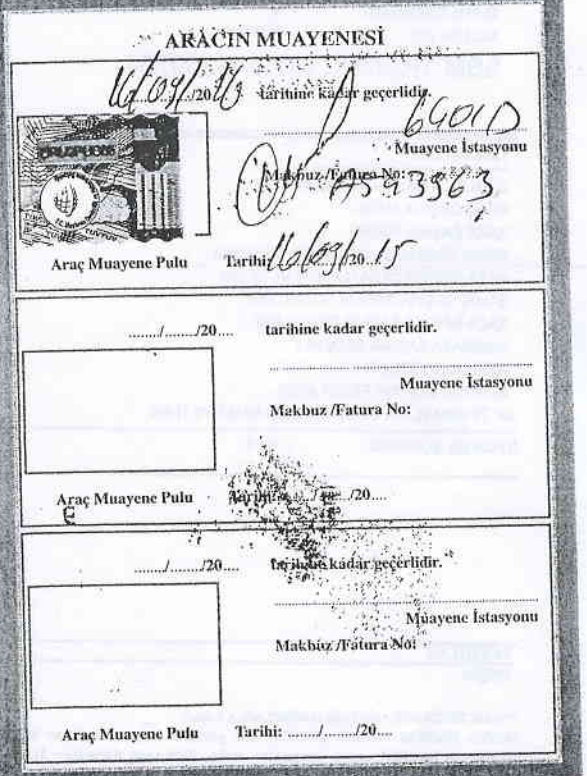 ARACIN MUAYENESİ
16/09/2016 tarihine kadar geçerlidir.
Muayene İstasyonu
Makbuz /Fatura No:
Araç Muayene Pulu Tarihi: 16/09/2015
......../......../20.... tarihine kadar geçerlidir.
Muayene İstasyonu
Makbuz /Fatura No:
Araç Muayene Pulu Tarihi: ......./......./20....
......../......../20.... tarihine kadar geçerlidir.
Muayene İstasyonu
Makbuz /Fatura No:
Araç Muayene Pulu Tarihi: ......./......./20....